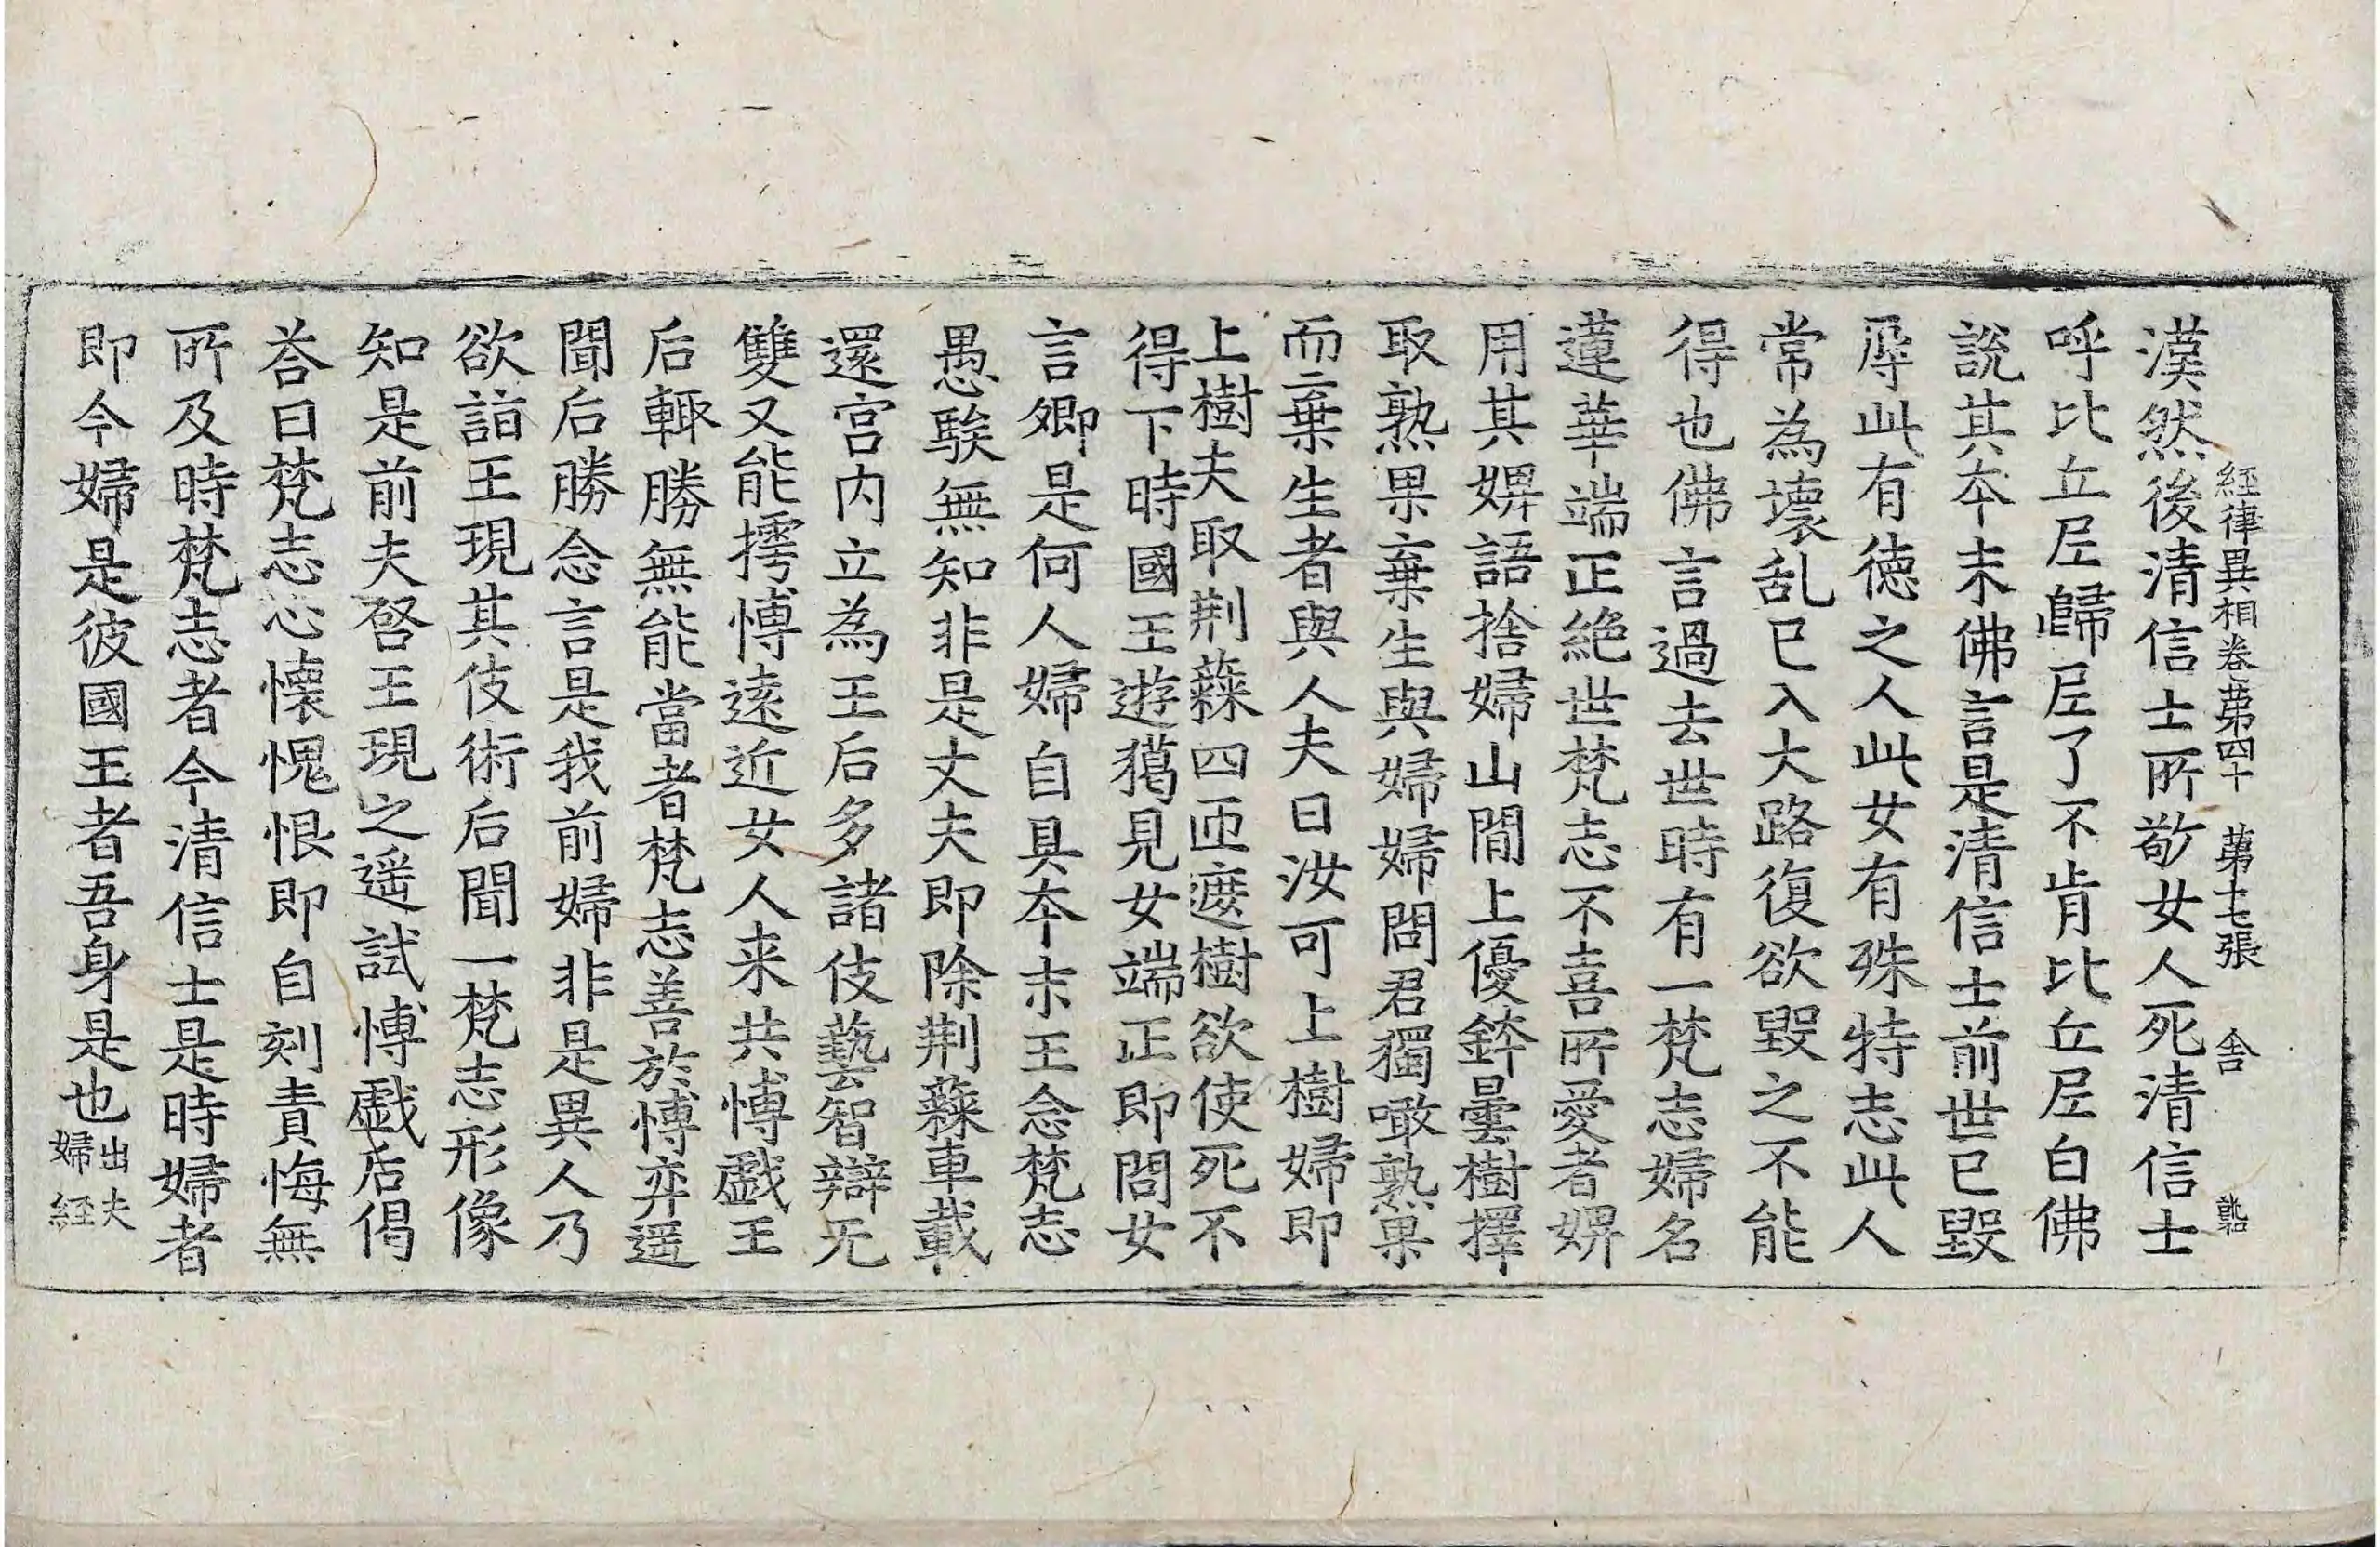 經律異相卷第四十 第十七張 舍
漢然後清信士所敬女人死清信士
呼比丘尼歸尼了不肯比丘尼白佛
說其本末佛言是清信士前世已毀
辱此有德之人此女有殊特志此人
常為壞乱已入大路復欲毀之不能
得也佛言過去世時有一梵志婦名
蓮華端正絶世梵志不喜所愛者婢
用其婢語捨婦山間上優鉢曇樹擇
取熟果棄生與婦婦問君獨噉熟果
而棄生者與人夫曰汝可上樹婦即
上樹夫取荆蕀四匝遮樹欲使死不
得下時國王遊獦見女端正即問女
言卿是何人婦自具本末王念梵志
愚騃無知非是丈夫即除荆蕀車載
還宫内立為王后多諸伎藝智辯无
雙又能摴博遠近女人来共博戲王
后輙勝無能當者梵志善於博弈遥
聞后勝念言是我前婦非是異人乃
欲詣王現其伎術后聞一梵志形像
知是前夫啓王現之遥試博戲后偈
荅曰梵志心懷愧恨即自剋責悔無
所及時梵志者今清信士是時婦者
即今婦是彼國王者吾身是也出夫婦經